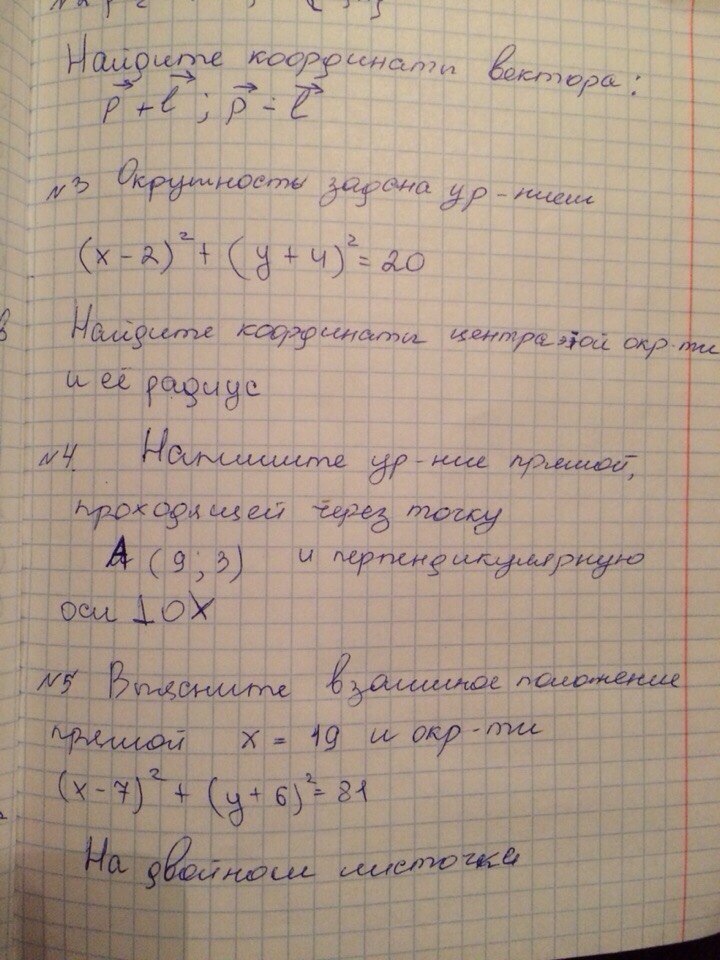 Найдите координаты вектора:
p⃗ + l⃗ ; p⃗ - l⃗
№3 Окружность задана ур-нием
(x-2)² + (y+4)² = 20
Найдите координаты центра этой окр-ти
и её радиус
№4. Напишите ур-ние прямой,
проходящей через точку
A (9; 3) и перпендикулярную
оси OX
№5 Выясните взаимное положение
прямой x = 19 и окр-ти
(x-7)² + (y+6)² = 81
На двойном листочке